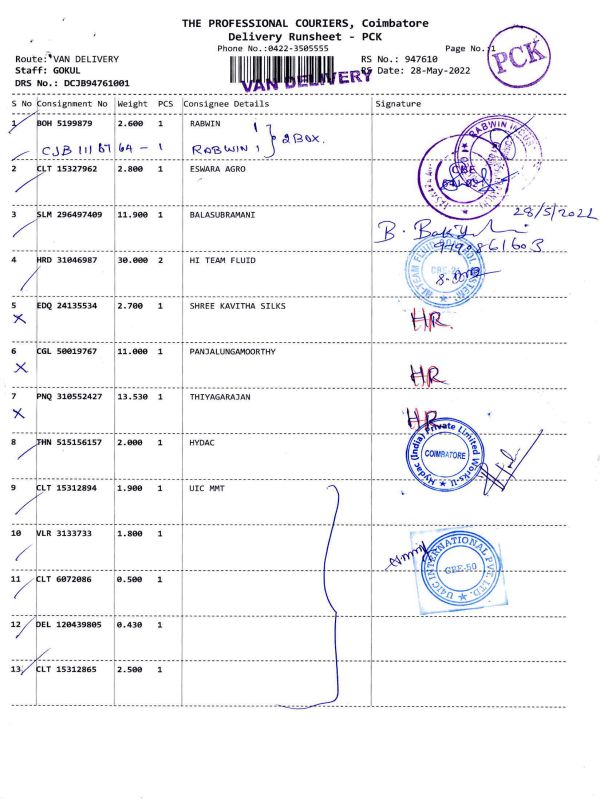 THE PROFESSIONAL COURIERS, Coimbatore
Delivery Runsheet - PCK
Phone No.:0422-3505555 Page No.:1
PCK
Route: VAN DELIVERY RS No.: 947610
Staff: GOKUL VAN DELIVERY RS Date: 28-May-2022
DRS No.: DCJB94761001
S No Consignment No Weight PCS Consignee Details Signature
1 BOH 5199879 2.600 1 RABWIN 1
CJB 111 87 64 - 1 RABWIN 1 } 2 BOX.
RABWIN INDUS
CBE
2 CLT 15327962 2.800 1 ESWARA AGRO
28/5/2022
3 SLM 296497409 11.900 1 BALASUBRAMANI
B.
4 HRD 31046987 30.000 2 HI TEAM FLUID
HI-TEAM FLUID
5 EDQ 24135534 2.700 1 SHREE KAVITHA SILKS
X HR
6 CGL 50019767 11.000 1 PANJALUNGAMOORTHY
X HR
7 PNQ 310552427 13.530 1 THIYAGARAJAN
X HR
8 THN 515156157 2.000 1 HYDAC
Hydac (India) Private Limited Works-II
COIMBATORE
9 CLT 15312894 1.900 1 UIC MMT
10 VLR 3133733 1.800 1
INTERNATIONAL PVT. LTD.
CBE-50
11 CLT 6072086 0.500 1
12 DEL 120439805 0.430 1
13 CLT 15312865 2.500 1